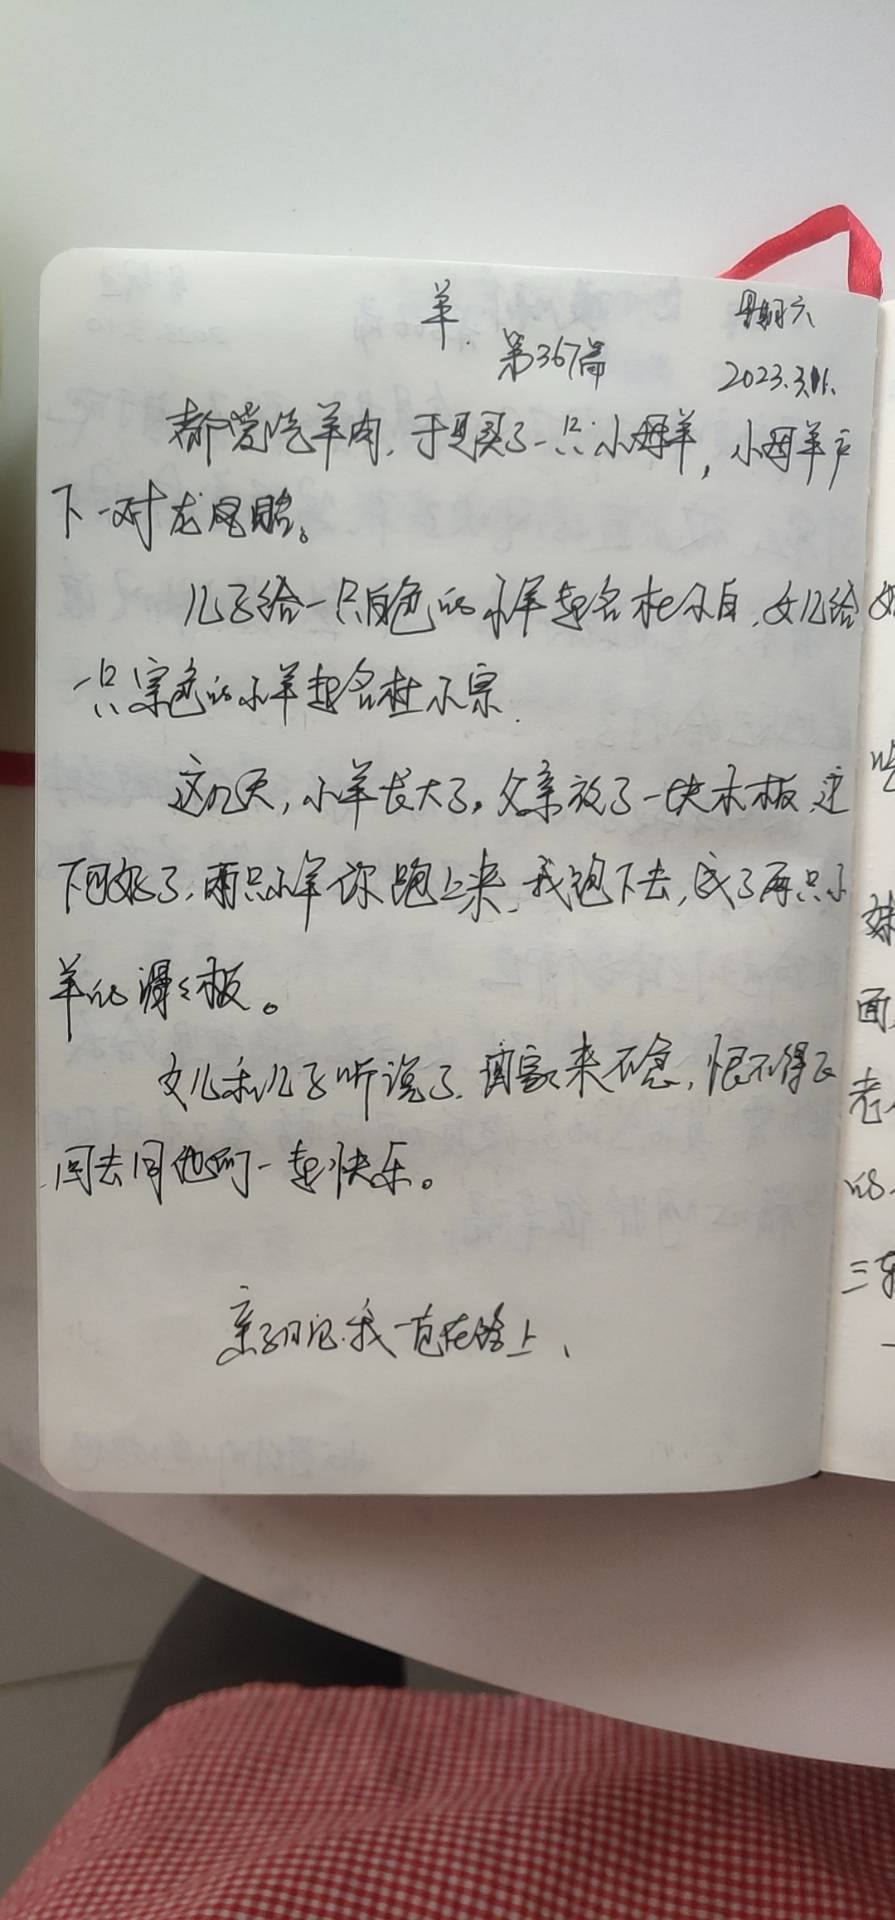 羊.
星期六
第367篇
2023.3.11.
都爱吃羊肉,于是买了一只小母羊,小母羊产
下一对龙凤胎。
儿子给一只白色的小羊起名杜小白,女儿给
一只宗色的小羊起名杜小宗.
这几天,小羊长大了。父亲放了一块木板,这
下可好了,两只小羊你跑上来,我跑下去,成了两只小
羊的滑滑板。
女儿和儿子听说了,回家来不急,恨不得飞
回去同他们一起快乐。
亲子日记.我一直在路上、
妹
面
老
的
三